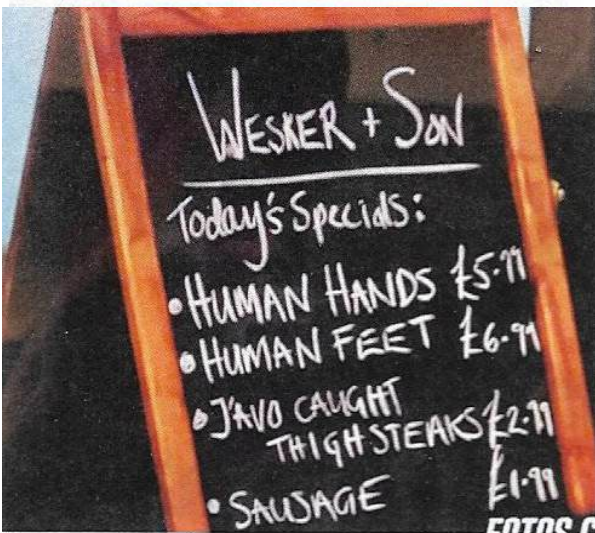 WESKER + SON
Today's Specials:
• HUMAN HANDS £5.99
• HUMAN FEET £6.99
• J'AVO CAUGHT
THIGH STEAKS £2.99
• SAUSAGE £1.99
FOTOS